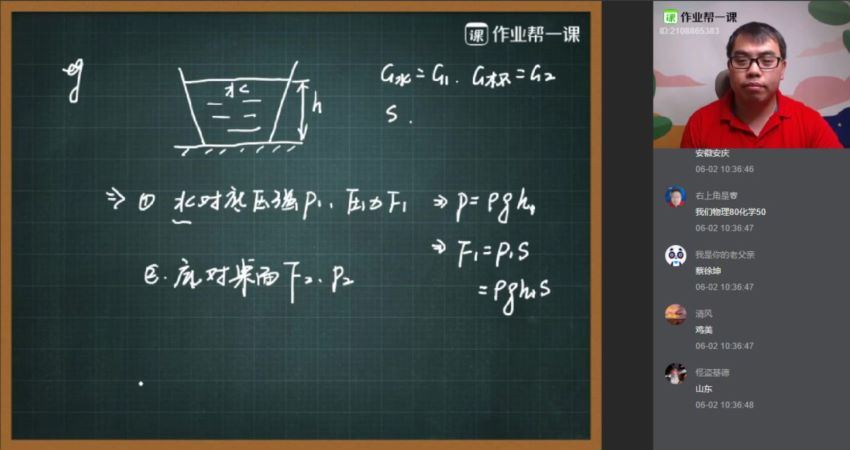 课 作业帮一课
eg
G水=G1. G杯=G2
S.
水
h
⇒ ① 水对底压强P1, 压力F1 ⇒ P=ρgh
⇒ F1=P1S
=ρghS
②. 底对桌面F2、P2
课 作业帮一课
ID:2108865383
安徽安庆
06-02 10:36:46
右上角是
我们物理80化学50
06-02 10:36:47
我是你的老父亲
蔡徐坤
06-02 10:36:47
清风
鸡美
06-02 10:36:47
怪盗基德
山东
06-02 10:36:48